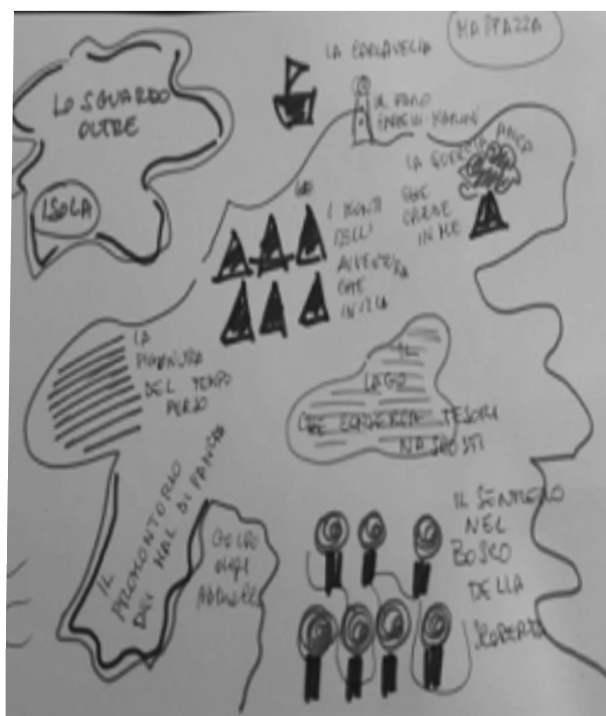 MAPPAZZA
LO SGUARDO
OLTRE
ISOLA
LA
IL FARO
LA QUERCIA
CHE
CREDE
IN ME
I MONTI
DELL'
AVVENTURA
CHE
INIZIA
LA
PIANURA
DEL TEMPO
PERSO
IL
LAGO
CHE CONSERVA TESORI
NASCOSTI
IL
PROMONTORIO
DEI MAL DI PANCIA
GOLFO
DEGLI
IL SENTIERO
NEL
BOSCO
DELLA
SCOPERTA